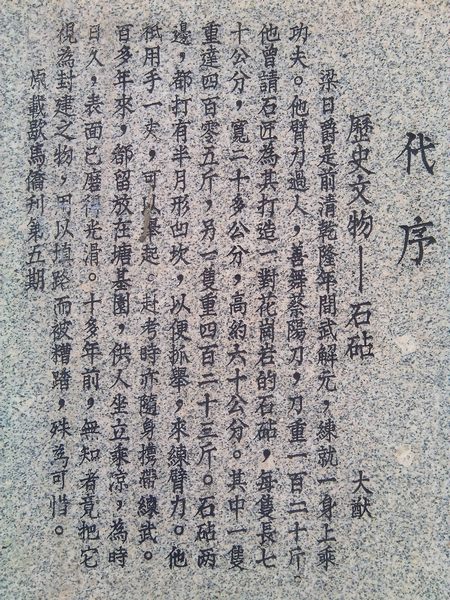 代序
歷史文物——石砧 大猷
梁日爵是前清乾隆年間武解元，練就一身上乘
功夫。他臂力過人，善舞蔡陽刀，刀重一百二十斤。
他曾請石匠為其打造一對花崗岩的石砧，每隻長七
十公分，寬二十多公分，高約六十公分。其中一隻
重達四百零五斤，另一隻重四百二十三斤。石砧兩
邊，都打有半月形凹坎，以便抓舉，來練臂力。他
祇用手一夾，可以舉起。赴考時亦隨身携帶練武。
百多年來，都留放在塘基園，供人坐立乘凉，為時
日久，表面已磨得光滑。十多年前，無知者竟把它
視為封建之物，用以填路而被糟踏，殊為可惜。
原載歇馬僑刊第五期